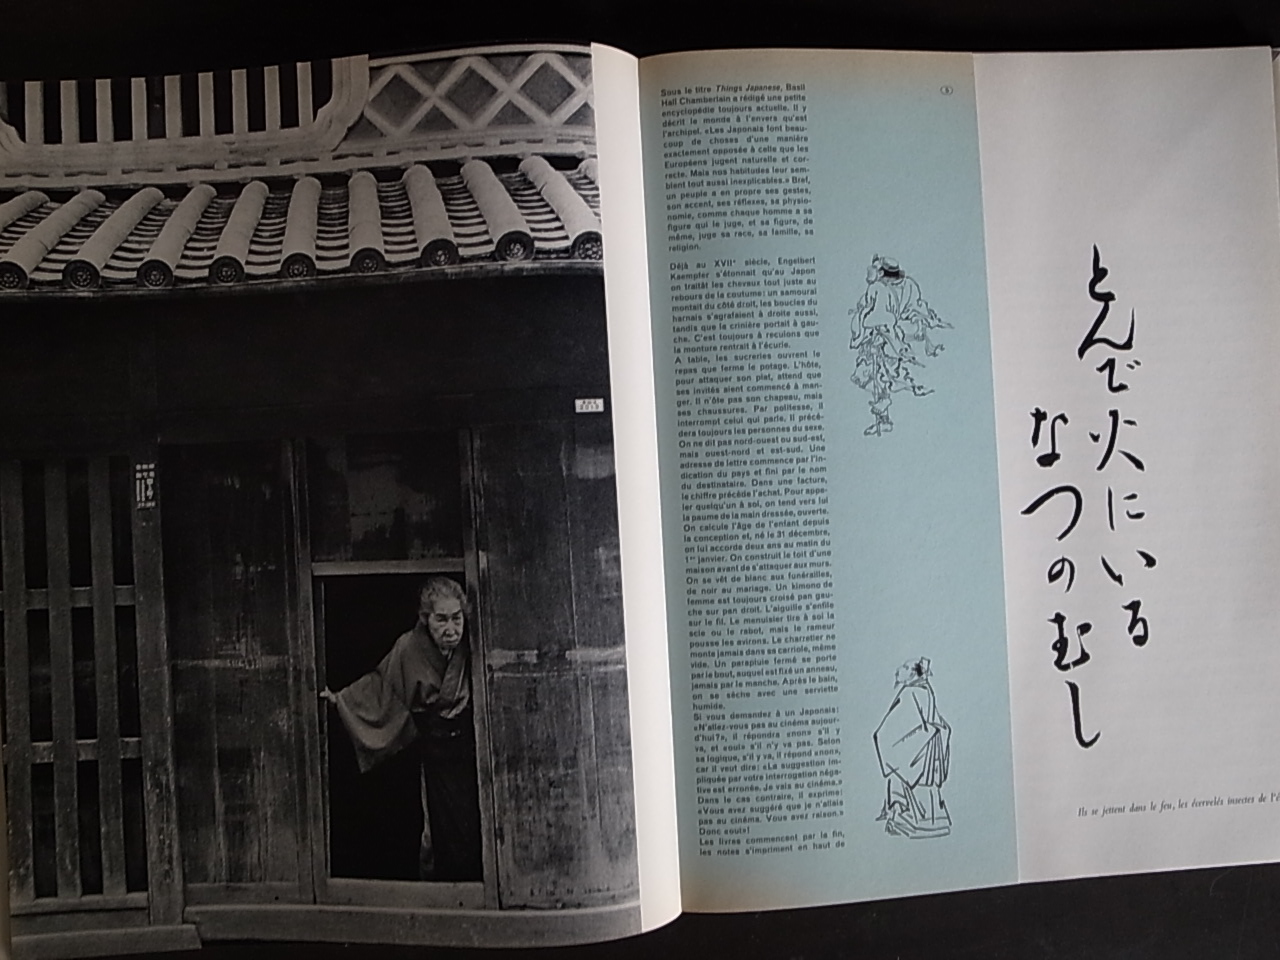 2013
Sous le titre Things Japanese, Basil
Hall Chamberlain a rédigé une petite
encyclopédie toujours actuelle. Il y
décrit le monde à l'envers qu'est
l'archipel. «Les Japonais font beau-
coup de choses d'une manière
exactement opposée à celle que les
Européens jugent naturelle et cor-
recte. Mais nos habitudes leur sem-
blent tout aussi inexplicables.» Bref,
un peuple a en propre ses gestes,
son accent, ses réflexes, sa physio-
nomie, comme chaque homme a sa
figure qui le juge, et sa figure, de
même, juge sa race, sa famille, sa
religion.
Déjà au XVIIe siècle, Engelbert
Kaempfer s'étonnait qu'au Japon
on traitât les chevaux tout juste au
rebours de la coutume: un samouraï
montait du côté droit, les boucles du
harnais s'agrafaient à droite aussi,
tandis que la crinière portait à gau-
che. C'est toujours à reculons que
la monture rentrait à l'écurie.
A table, les sucreries ouvrent le
repas que ferme le potage. L'hôte,
pour attaquer son plat, attend que
ses invités aient commencé à man-
ger. Il n'ôte pas son chapeau, mais
ses chaussures. Par politesse, il
interrompt celui qui parle. Il précé-
dera toujours les personnes du sexe.
On ne dit pas nord-ouest ou sud-est,
mais ouest-nord et est-sud. Une
adresse de lettre commence par l'in-
dication du pays et fini par le nom
du destinataire. Dans une facture,
le chiffre précède l'achat. Pour appe-
ler quelqu'un à soi, on tend vers lui
la paume de la main dressée, ouverte.
On calcule l'âge de l'enfant depuis
la conception et, né le 31 décembre,
on lui accorde deux ans au matin du
1er janvier. On construit le toit d'une
maison avant de s'attaquer aux murs.
On se vêt de blanc aux funérailles,
de noir au mariage. Un kimono de
femme est toujours croisé pan gau-
che sur pan droit. L'aiguille s'enfile
sur le fil. Le menuisier tire à soi la
scie ou le rabot, mais le rameur
pousse les avirons. Le charretier ne
monte jamais dans sa carriole, même
vide. Un parapluie fermé se porte
par le bout, auquel est fixé un anneau,
jamais par le manche. Après le bain,
on se sèche avec une serviette
humide.
Si vous demandez à un Japonais:
«N'allez-vous pas au cinéma aujour-
d'hui?», il répondra «non» s'il y
va, et «oui» s'il n'y va pas. Selon
sa logique, s'il y va, il répond «non»,
car il veut dire: «La suggestion im-
pliquée par votre interrogation néga-
tive est erronée. Je vais au cinéma.»
Dans le cas contraire, il exprime:
«Vous avez suggéré que je n'allais
pas au cinéma. Vous avez raison.»
Donc «oui»!
Les livres commencent par la fin,
les notes s'impriment en haut de
とんで火にいる
なつのむし
Ils se jettent dans le feu, les écervelés insectes de l'é